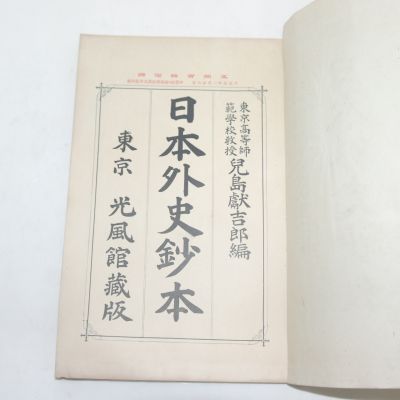 文部省検定済
東京高等師
範學校教授
兒島獻吉郎編
日本外史鈔本
東京 光風館藏版